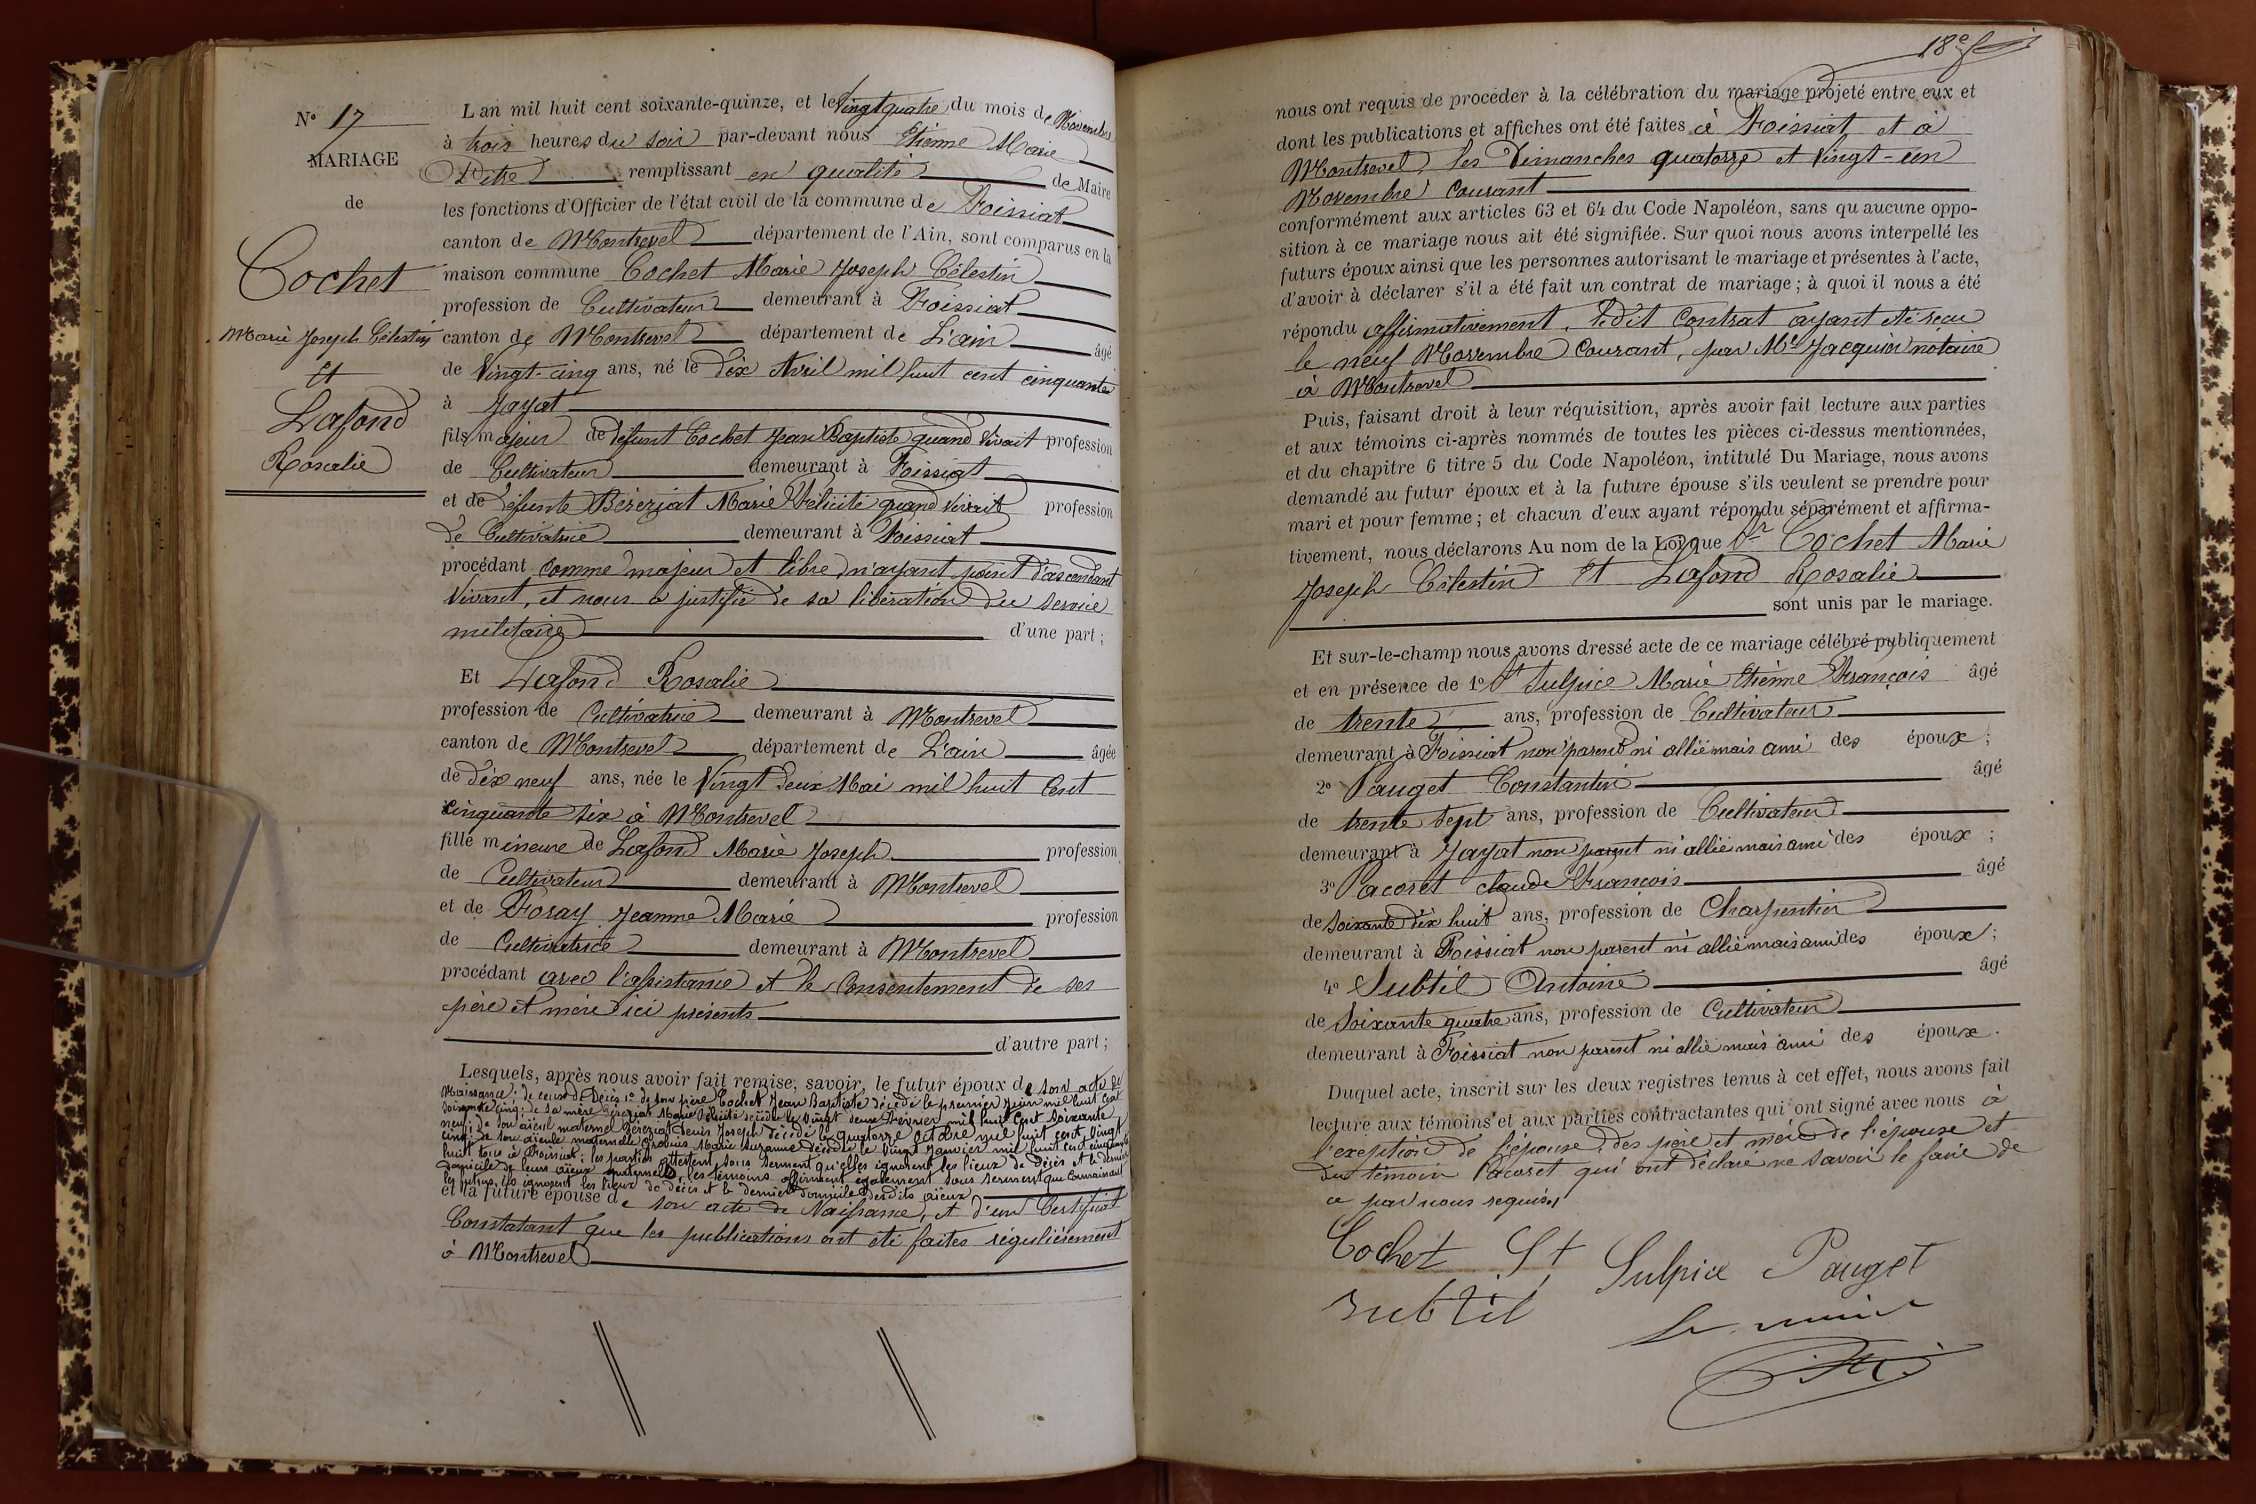 N° 17
MARIAGE
de
Cochet
Marie Joseph Célestin
Et
Lafond
Rosalie
L'an mil huit cent soixante-quinze, et le Vingt quatre du mois de Novembre
à trois heures du soir par-devant nous Etienne Marie
remplissant en qualité de Maire
les fonctions d'Officier de l'état civil de la commune de Foissiat
canton de Montrevel département de l'Ain, sont comparus en la
maison commune Cochet Marie Joseph Célestin
profession de Cultivateur demeurant à Foissiat
canton de Montrevel département de L'ain âgé
de Vingt-cinq ans, né le Dix Avril mil huit cent cinquante
à Jayat
fils majeur de défunt Cochet Jean Baptiste quand vivait profession
de Cultivateur demeurant à Foissiat
et de défunte Béréziat Marie Félicité quand vivait profession
de Cultivatrice demeurant à Foissiat
procédant comme majeur et libre n'ayant point d'ascendant
vivant, et nous a justifié de sa libération du service
militaire d'une part ;
Et Lafond Rosalie
profession de Cultivatrice demeurant à Montrevel
canton de Montrevel département de L'ain âgée
de dix neuf ans, née le Vingt deux Mai mil huit Cent
cinquante six à Montrevel
fille mineure de Lafond Marie Joseph profession
de Cultivateur demeurant à Montrevel
et de Foray Jeanne Marie profession
de Cultivatrice demeurant à Montrevel
procédant avec l'assistance et le Consentement de ses
père et mère ici présents
d'autre part ;
Lesquels, après nous avoir fait remise, savoir, le futur époux de son acte de
Naissance ; de ceux de Décès 1° de son père Cochet Jean Baptiste décédé le premier Juin mil huit Cent
Soixante cinq ; de sa mère Béréziat Marie Félicité décédée le Vingt deux Février mil huit Cent Soixante
neuf ; de son aïeul maternel Béréziat Denis Joseph décédé le quatorze Octobre mil huit cent Vingt
cinq ; de son aïeule maternelle Marie Suzanne décédée le Vingt Janvier mil huit cent cinquante
huit tous à Foissiat ; les parties attestent sous serment qu'elles ignorent les lieux de Décès et le dernier
domicile de leurs aïeux paternels, les témoins affirment également sous serment que connaissant
les futurs, ils ignorent les lieux de décès et le dernier domicile desdits aïeux
et la future épouse de son acte de Naissance, et d'un Certificat
Constatant que les publications ont été faites régulièrement
à Montrevel
18e
nous ont requis de procéder à la célébration du mariage projeté entre eux et
dont les publications et affiches ont été faites à Foissiat et à
Montrevel les Dimanches quatorze et Vingt-un
Novembre Courant
conformément aux articles 63 et 64 du Code Napoléon, sans qu'aucune oppo-
sition à ce mariage nous ait été signifiée. Sur quoi nous avons interpellé les
futurs époux ainsi que les personnes autorisant le mariage et présentes à l'acte,
d'avoir à déclarer s'il a été fait un contrat de mariage ; à quoi il nous a été
répondu affirmativement, ledit Contrat ayant été reçu
le neuf Novembre Courant, par Me Jacquier notaire
à Montrevel
Puis, faisant droit à leur réquisition, après avoir fait lecture aux parties
et aux témoins ci-après nommés de toutes les pièces ci-dessus mentionnées,
et du chapitre 6 titre 5 du Code Napoléon, intitulé Du Mariage, nous avons
demandé au futur époux et à la future épouse s'ils veulent se prendre pour
mari et pour femme ; et chacun d'eux ayant répondu séparément et affirma-
tivement, nous déclarons Au nom de la Loi que Sr Cochet Marie
Joseph Célestin Et Lafond Rosalie
sont unis par le mariage.
Et sur-le-champ nous avons dressé acte de ce mariage célébré publiquement
et en présence de 1° St Sulpice Marie Etienne François âgé
de trente ans, profession de Cultivateur
demeurant à Foissiat non parent ni allié mais ami des époux ;
2° Pauget Constantin âgé
de trente sept ans, profession de Cultivateur
demeurant à Jayat non parent ni allié mais ami des époux ;
3° Pacoret Claude François âgé
de soixante dix huit ans, profession de Charpentier
demeurant à Foissiat non parent ni allié mais ami des époux ;
4° Subtil Antoine âgé
de Soixante quatre ans, profession de Cultivateur
demeurant à Foissiat non parent ni allié mais ami des époux.
Duquel acte, inscrit sur les deux registres tenus à cet effet, nous avons fait
lecture aux témoins et aux parties contractantes qui ont signé avec nous à
l'exeption de l'épouse, des père et mère de l'épouse et
du témoin Pacoret qui ont déclaré ne savoir le faire de
ce par nous requis
Cochet St Sulpice Pauget
Subtil
Le maire